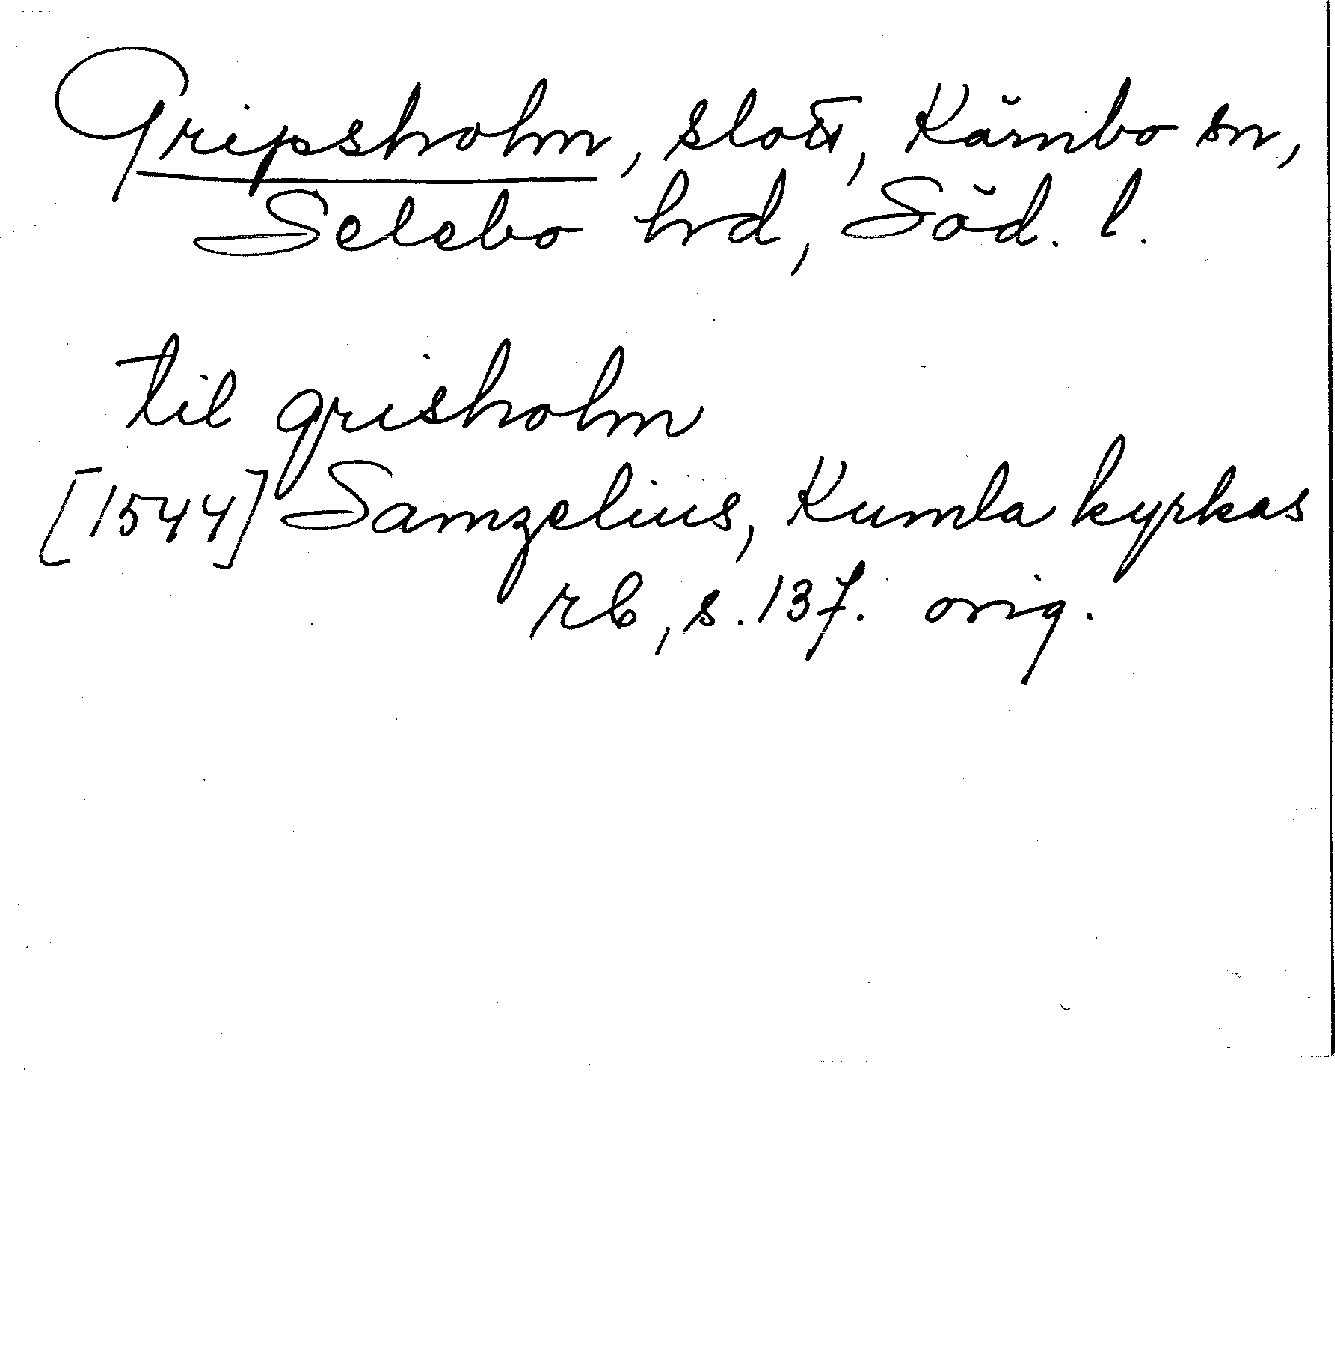 Gripsholm, slott, Kärnbo sn,
Selebo hrd, Söd. l.
til grisholm
[1544] Samzelius, Kumla kyrkas
rb, s. 137. orig.